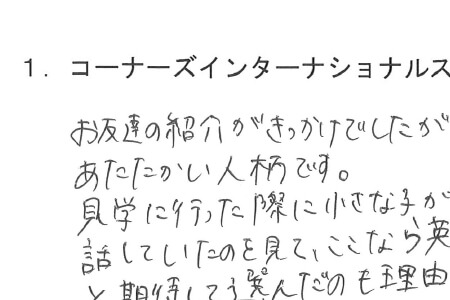 1. コーナーズインターナショナルス
お友達の紹介がきっかけでしたが
あたたかい人柄です。
見学に行った際に小さな子が
話していたのを見て、ここなら英
と期待して選んだのも理由